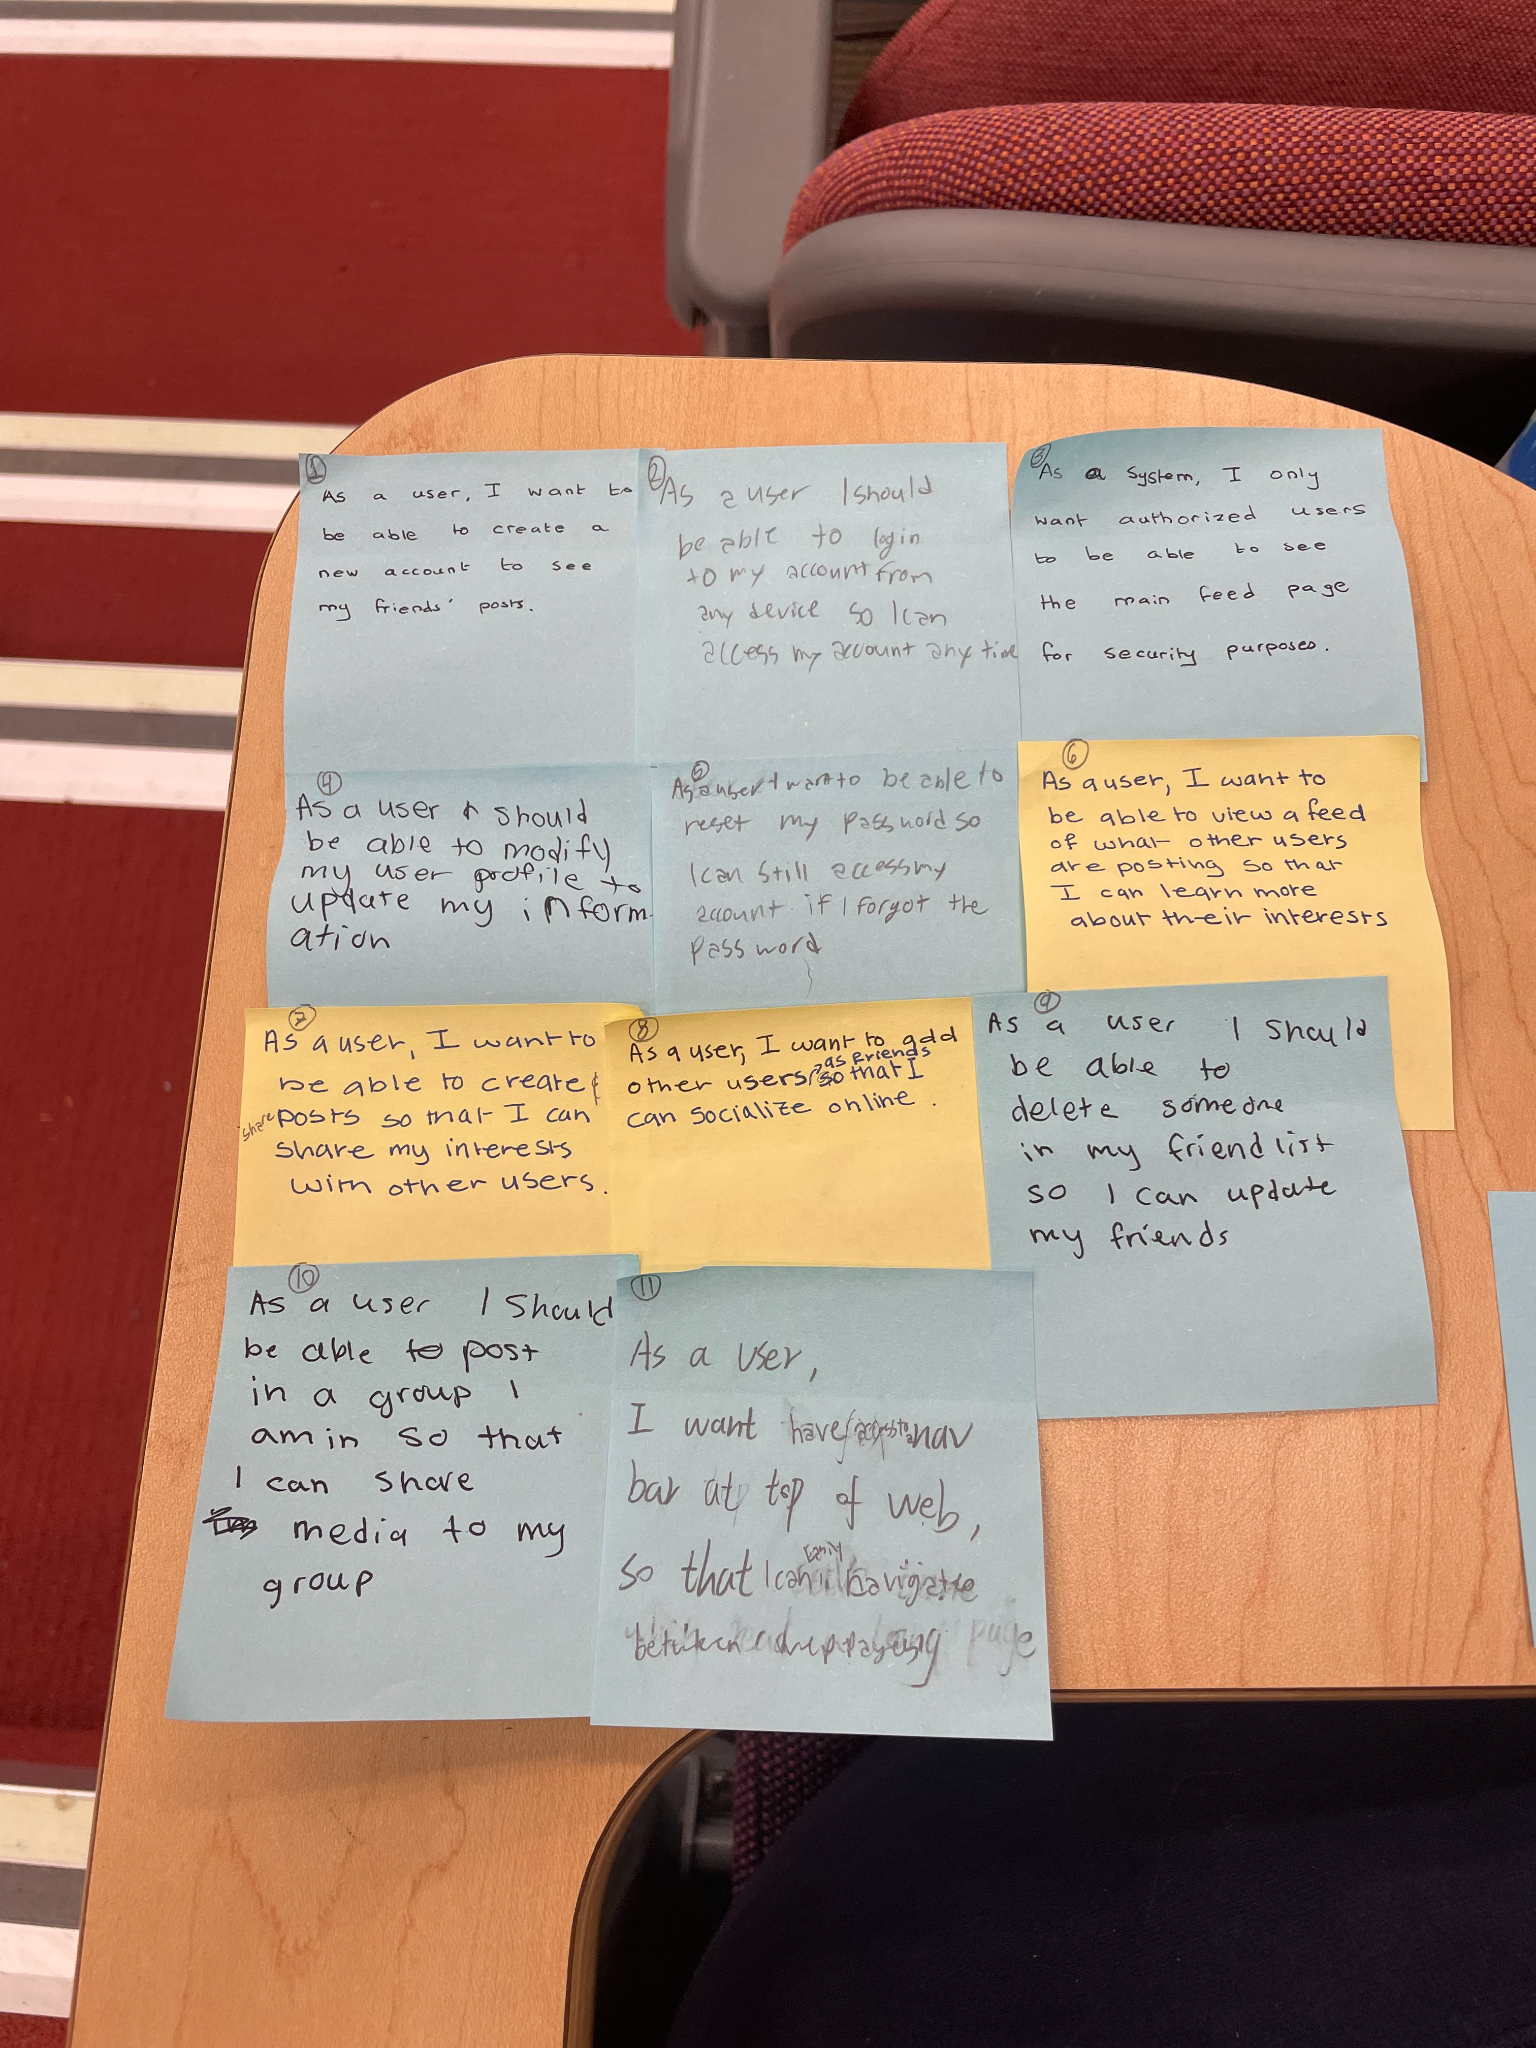 1
As a user, I want to
be able to create a
new account to see
my friends' posts.
2
As a user I should
be able to login
to my account from
any device so I can
access my account any time
3
As a system, I only
want authorized users
to be able to see
the main feed page
for security purposes.
4
As a user I should
be able to modify
my user profile to
update my inform-
ation
5
As a user I want to be able to
reset my password so
I can still access my
account if I forgot the
password
6
As a user, I want to
be able to view a feed
of what other users
are posting so that
I can learn more
about their interests
7
As a user, I want to
be able to create &
share posts so that I can
share my interests
with other users.
8
As a user, I want to add
other users as friends so that I
can socialize online.
9
As a user I should
be able to
delete someone
in my friend list
so I can update
my friends
10
As a user I should
be able to post
in a group I
am in so that
I can share
media to my
group
11
As a user,
I want have access to a nav
bar at top of web,
so that I can easily navigate
between page